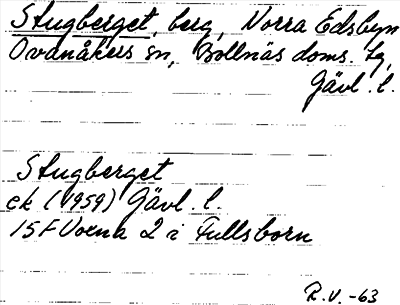 Stugberget, berg, Norra Edsbyn
Ovanåkers sn, Bollnäs doms. tg,
Gävl. l.
Stugberget
ek (1959) Gävl. l.
15F Voxna 2 i Fullsborn
R.V. -63